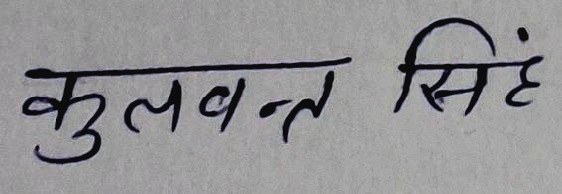 कुलवन्त सिहं